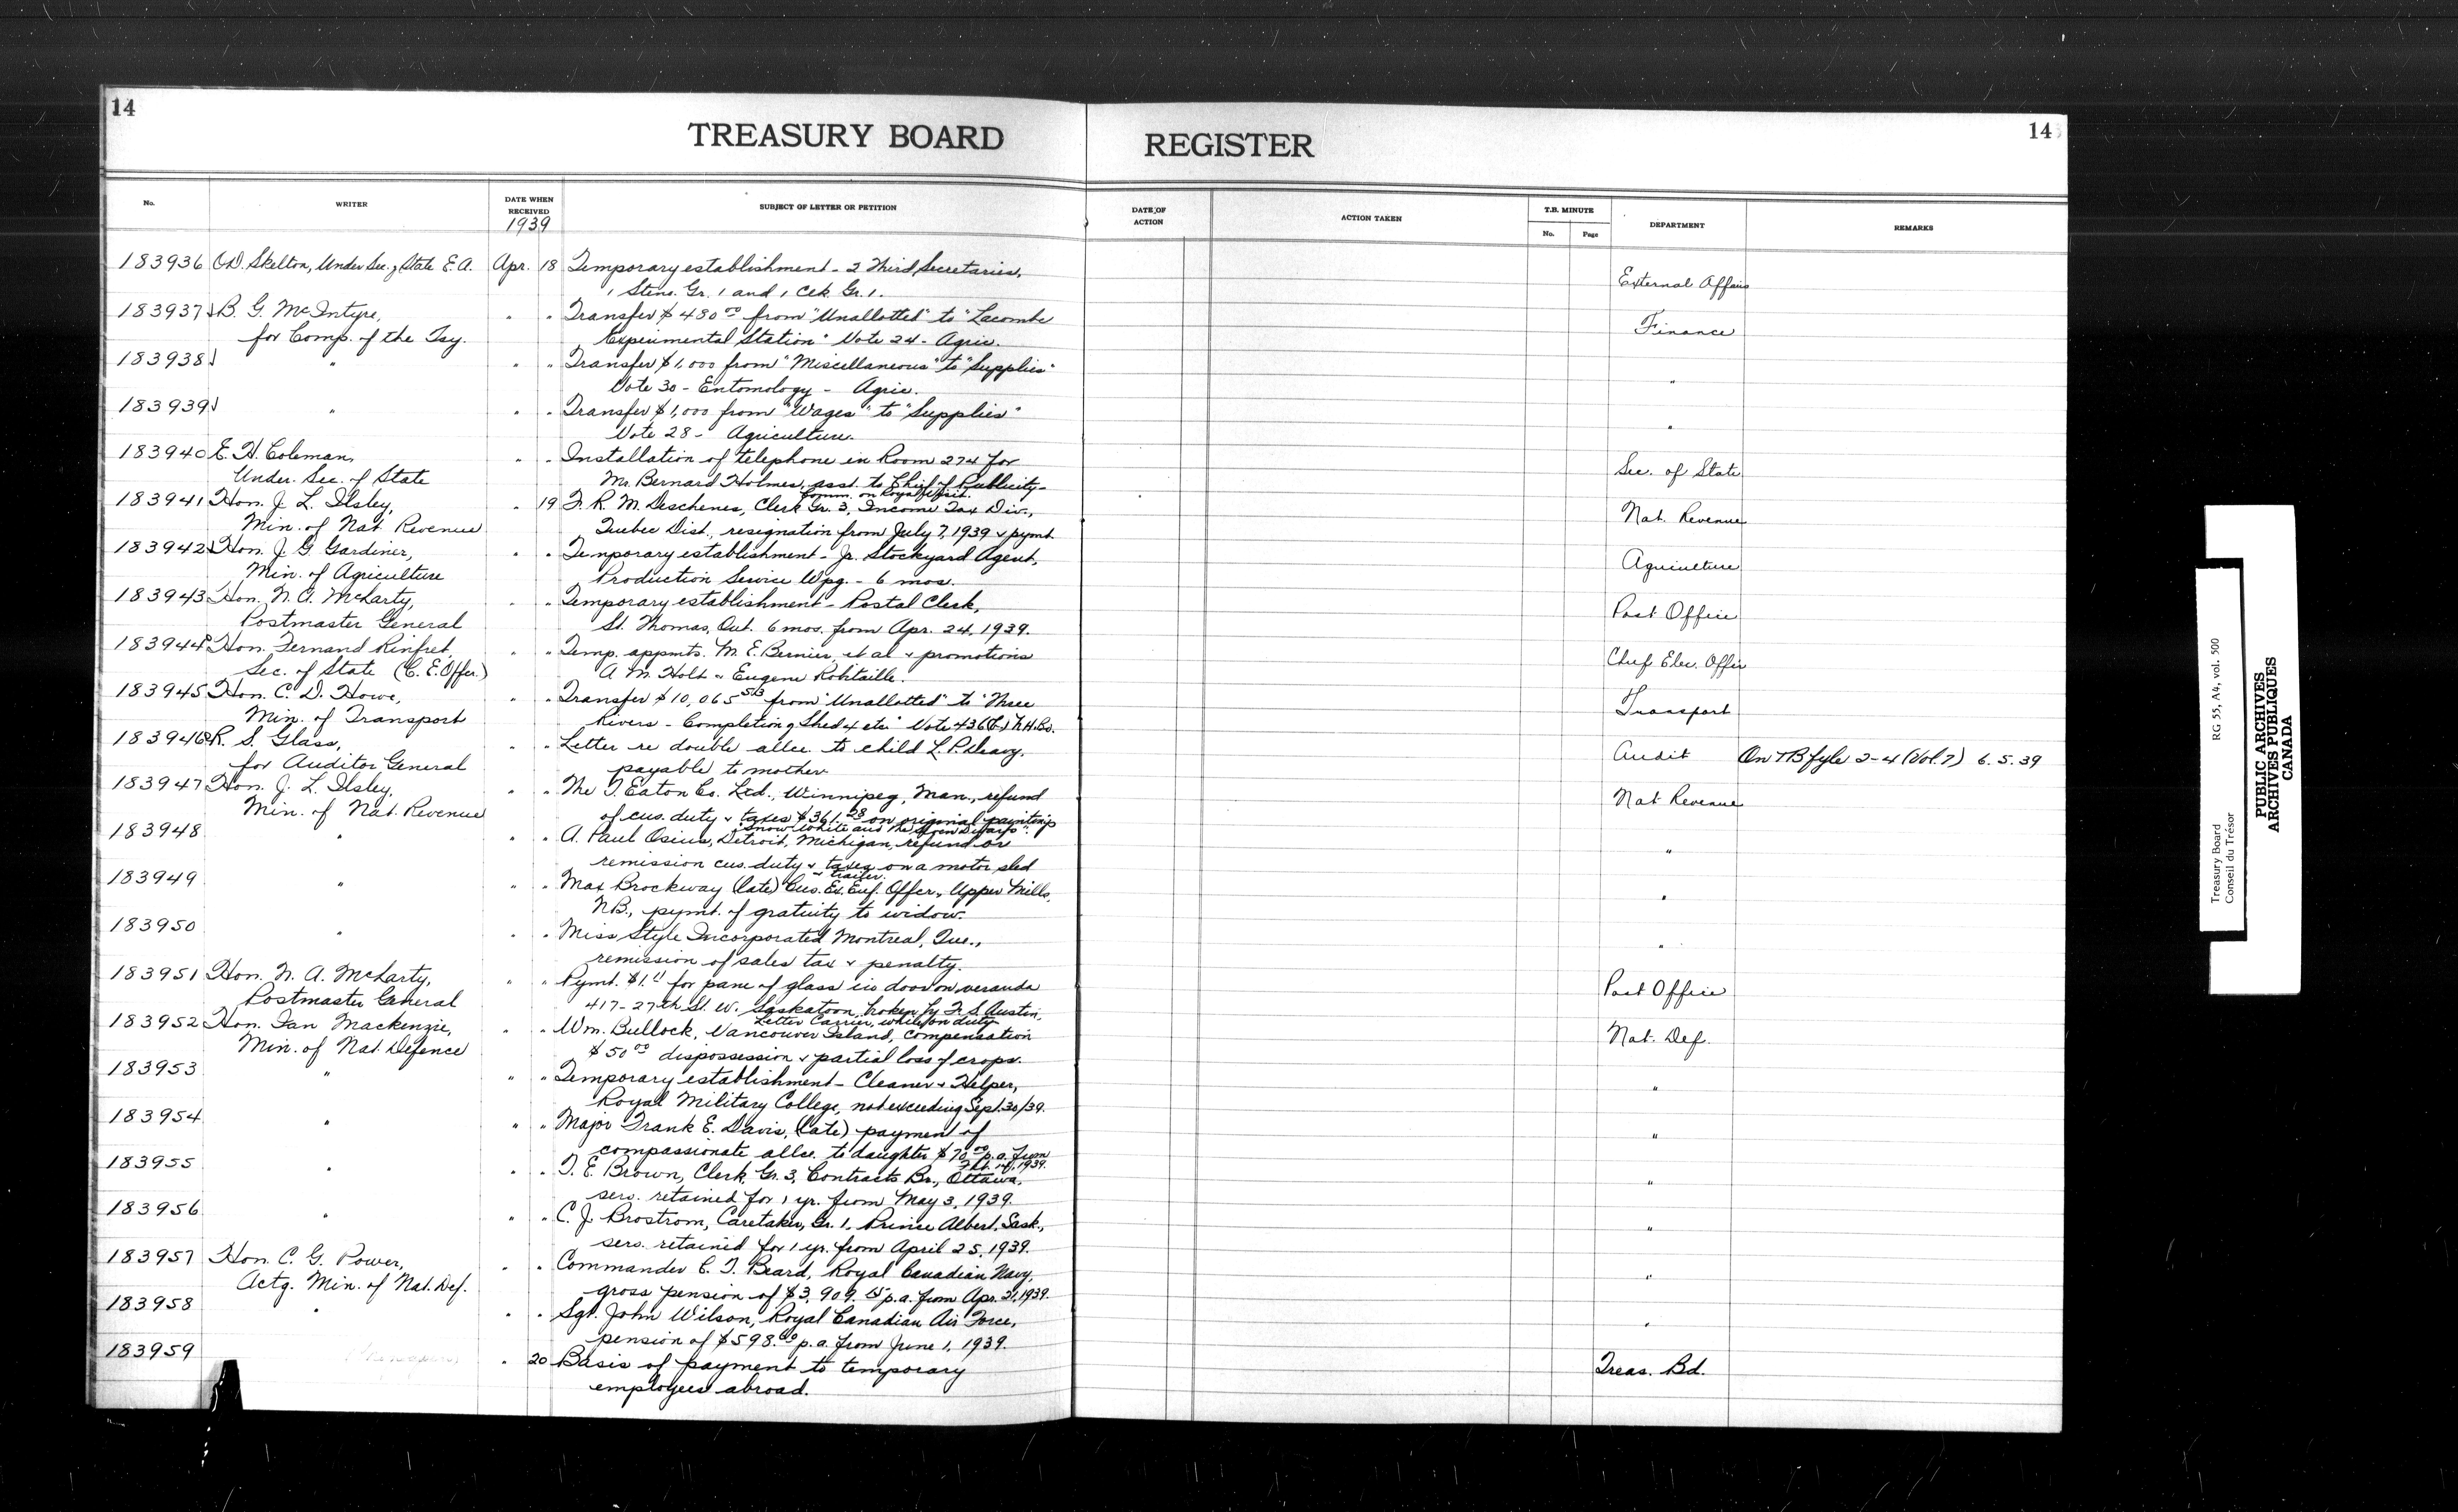 14
TREASURY BOARD REGISTER
14
No. WRITER DATE WHEN RECEIVED SUBJECT OF LETTER OR PETITION DATE OF ACTION ACTION TAKEN T.B. MINUTE No. Page DEPARTMENT REMARKS
1939
183936 O.D. Skelton, Under Sec. of State E.A. Apr. 18 Temporary establishment - 2 Third Secretaries, External Affairs
1 Steno. Gr. 1 and 1 Clk. Gr. 1.
183937 B. G. McIntyre, " " Transfer $480.00 from "Unallotted" to "Lacombe Finance
for Comp. of the Tsy. Experimental Station" Vote 24 - Agric.
183938 " " " Transfer $1,000 from "Miscellaneous" to "Supplies" "
Vote 30 - Entomology - Agric.
183939 " " " Transfer $1,000 from "Wages" to "Supplies" "
Vote 28 - Agriculture.
183940 E. H. Coleman, " " Installation of telephone in Room 274 for Sec. of State
Under. Sec. of State Mr. Bernard Holmes, asst. to Chief of Publicity -
Comm. on Royal Visit.
183941 Hon. J. L. Ilsley, " 19 F. R. M. Deschenes, Clerk Gr. 3, Income Tax Div., Nat. Revenue
Min. of Nat. Revenue Quebec Dist., resignation from July 7, 1939 & pymt.
183942 Hon. J. G. Gardiner, " " Temporary establishment - Jr. Stockyard Agent, Agriculture
Min. of Agriculture Production Service Wpg. - 6 mos.
183943 Hon. N. A. McLarty, " " Temporary establishment - Postal Clerk, Post Office
Postmaster General St. Thomas, Ont. 6 mos. from Apr. 24, 1939.
183944 Hon. Fernand Rinfret, " " Temp. appmts. M. E. Bernier, et al & promotions Chief Elec. Offir
Sec. of State (C. E. Offer.) A. M. Holt & Eugene Robitaille.
183945 Hon. C. D. Howe, " " Transfer $10,065.53 from "Unallotted" to "Three Transport
Min. of Transport Rivers - Completion of Shed 4 etc" Vote 436 N.H.Bd.
183946 R. S. Glass, " " Letter re double allce. to child L. P. Deavy. Audit On TB fyle 2-4 (Vol. 7) 6.5.39
for Auditor General payable to mother
183947 Hon. J. L. Ilsley, " " The T. Eaton Co. Ltd., Winnipeg, Man., refund Nat Revenue
Min. of Nat. Revenue of cus. duty & taxes $361.28 on original paintings
"Snow White and the Seven Dwarfs".
183948 " " " A. Paul Osius, Detroit, Michigan, refund or "
remission cus. duty & taxes on a motor sled
& trailer.
183949 " " " Max Brockway (late) Cus. Ex. Enf. Offer., Upper Mills, "
N.B., pymt. of gratuity to widow.
183950 " " " Miss Style Incorporated Montreal, Que., "
remission of sales tax & penalty.
183951 Hon. N. A. McLarty, " " Pymt. $1.11 for pane of glass in door on veranda Post Office
Postmaster General 417 - 27th St. W. Saskatoon, broken by F. S. Austin,
Letter Carrier, while on duty
183952 Hon. Ian Mackenzie, " " Wm. Bullock, Vancouver Island, compensation Nat. Def.
Min. of Nat. Defence $50.00 dispossession & partial loss of crops.
183953 " " " Temporary establishment - Cleaner & Helper, "
Royal Military College, not exceeding Sept. 30/39.
183954 " " " Major Frank E. Davis, (late) payment of "
compassionate allce. to daughter $70.00 p.a. from
Feb. 14, 1939.
183955 " " " T. E. Brown, Clerk, Gr. 3, Contracts Br., Ottawa, "
serv. retained for 1 yr. from May 3, 1939.
183956 " " " C. J. Brostrom, Caretaker, Gr. 1, Prince Albert, Sask., "
serv. retained for 1 yr. from April 25, 1939.
183957 Hon. C. G. Power, " " Commander C. T. Beard, Royal Canadian Navy, "
Actg. Min. of Nat. Def. gross pension of $3,909. p.a. from Apr. 21, 1939.
183958 " " " Sgt. John Wilson, Royal Canadian Air Force, "
pension of $598. p.a. from June 1, 1939.
183959 " 20 Basis of payment to temporary Treas. Bd.
employees abroad.
Treasury Board RG 55, A4, vol. 500
Conseil du Trésor
PUBLIC ARCHIVES
ARCHIVES PUBLIQUES
CANADA